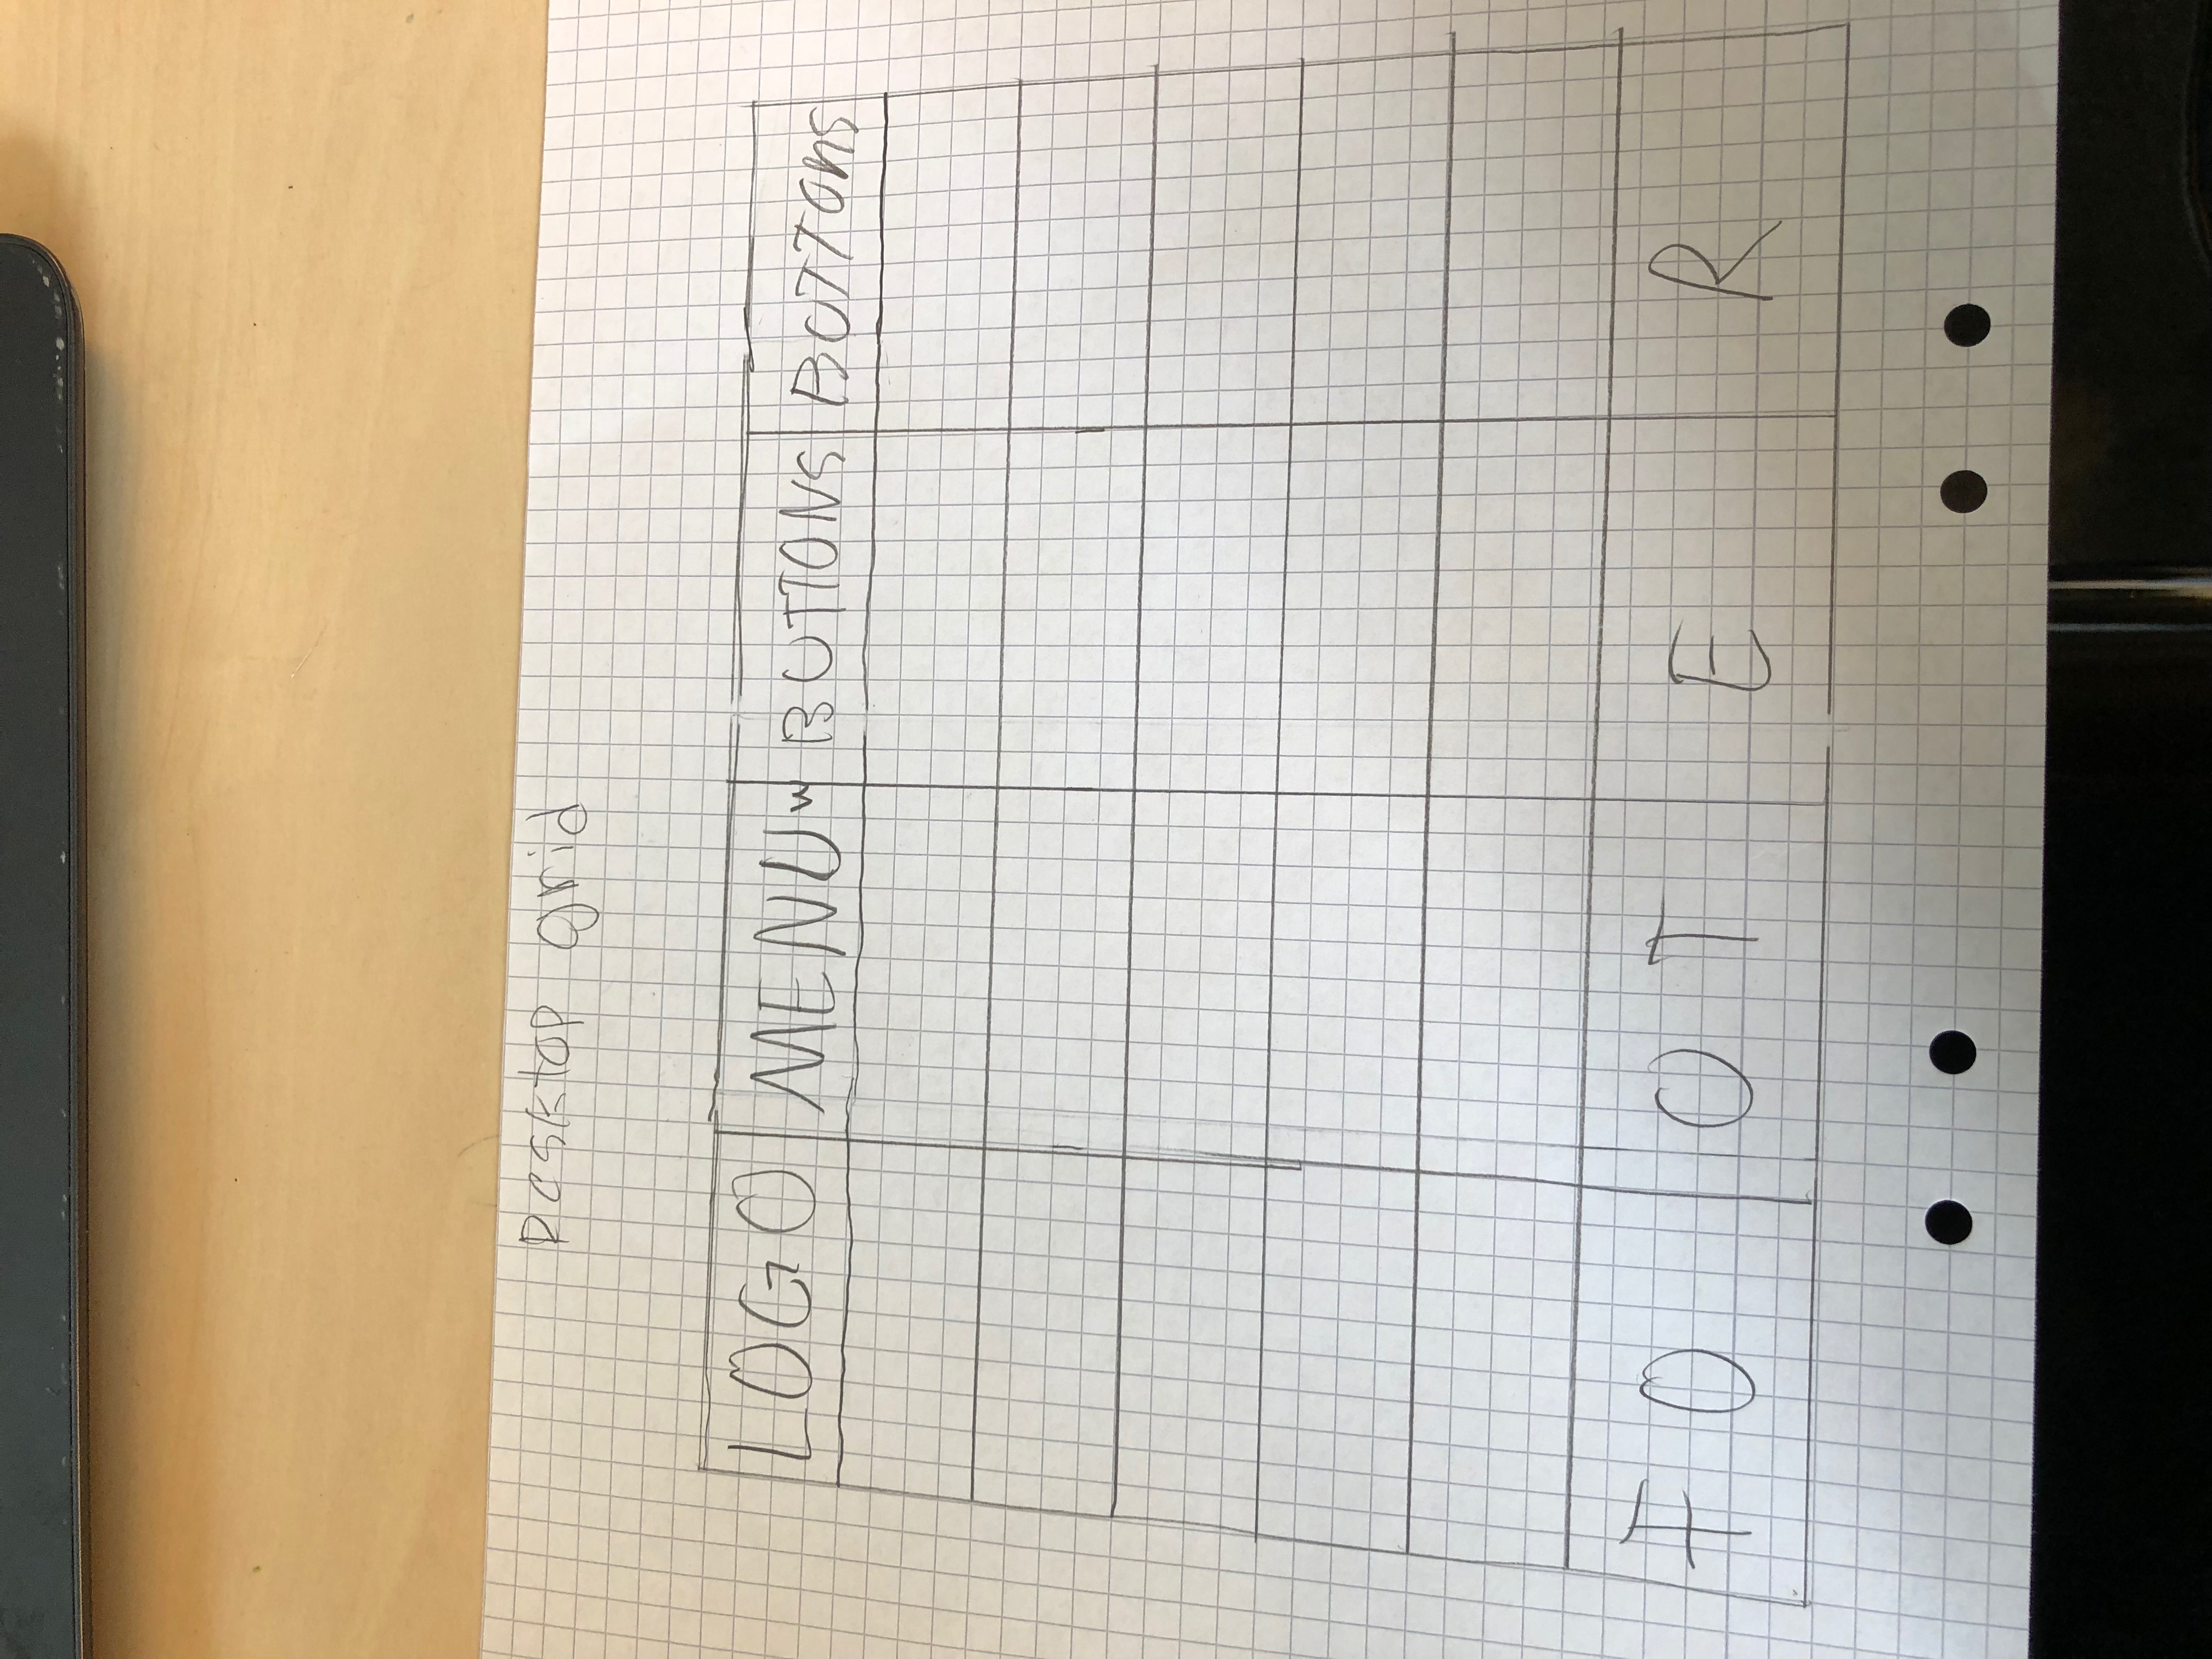 Desktop grid
LOGO MENU w BUTTONS BUTTons
FOOTER